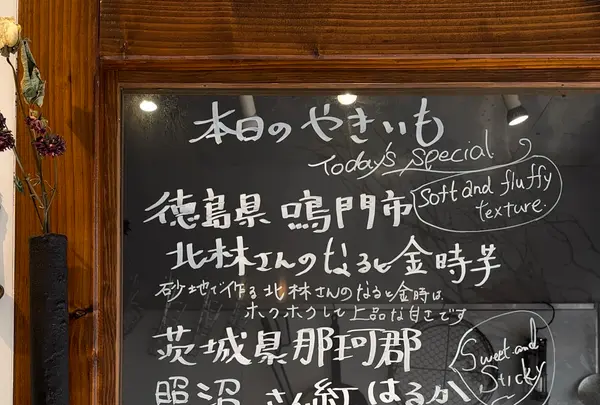 本日のやきいも
Today's special
徳島県 鳴門市
Soft and fluffy
texture.
北林さんのなると金時芋
砂地で作る北林さんのなると金時は
ホクホクして上品な甘さです
茨城県那珂郡
Sweet and
Sticky
照沼 さん紅はるか